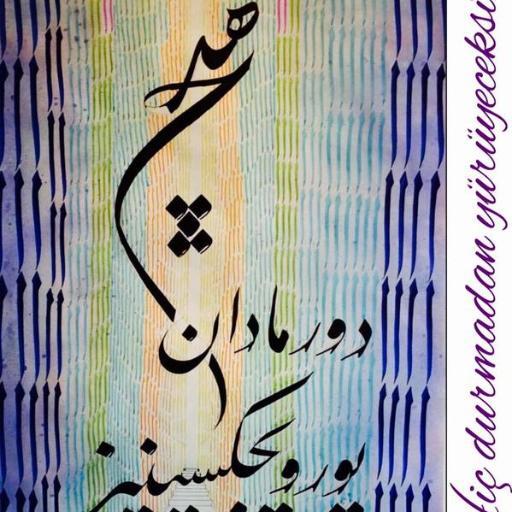 هیچ
دورمادان
یورویجکسینیز
Hiç durmadan yürüyeceksi